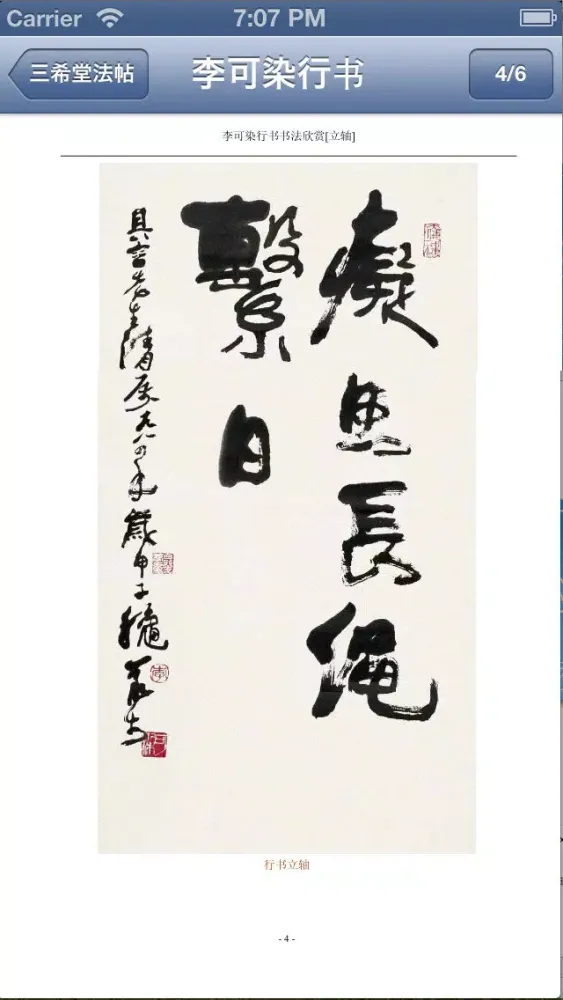 Carrier 7:07 PM
三希堂法帖
李可染行书
4/6
李可染行书书法欣赏[立轴]
癡思長繩
繫日
一九八四年歲甲子
行书立轴
- 4 -